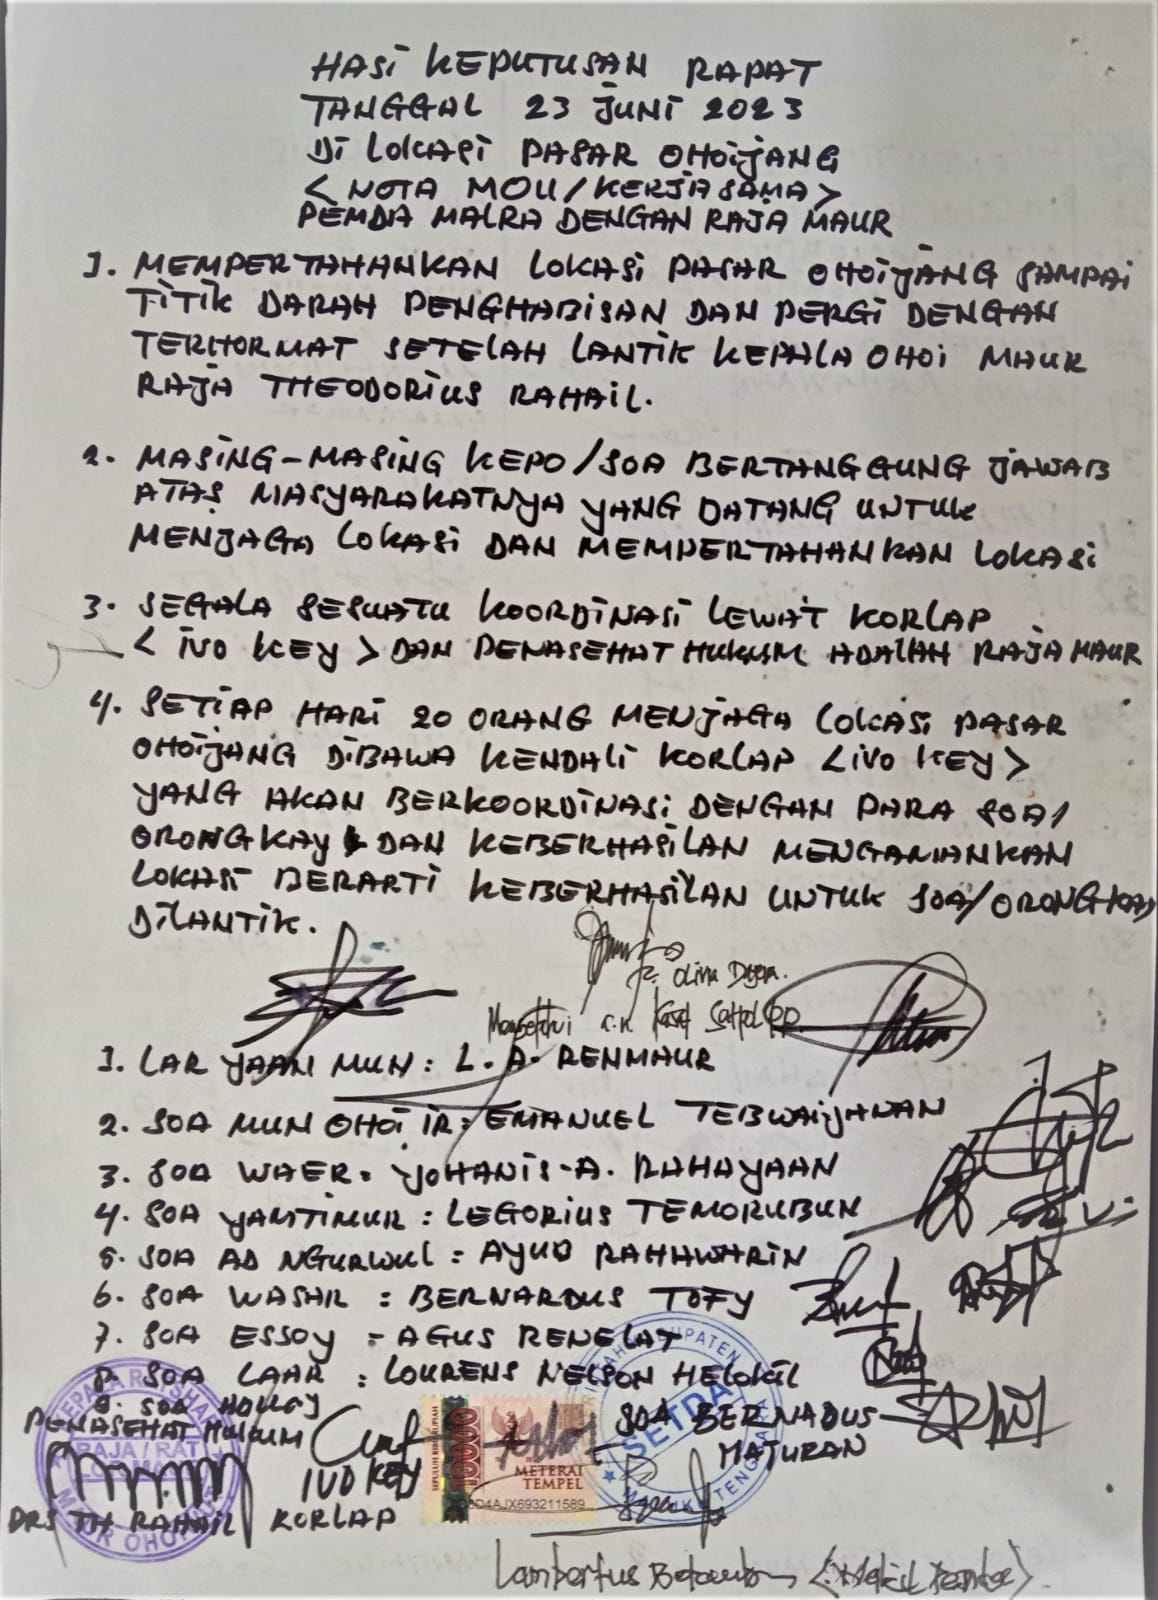 HASI KEPUTUSAN RAPAT
TANGGAL 23 JUNI 2023
DI LOKASI PASAR OHOIJANG
< NOTA MOU/KERJASAMA >
PEMDA MALRA DENGAN RAJA MAUR
1. MEMPERTAHANKAN LOKASI PASAR OHOIJANG SAMPAI
TITIK DARAH PENGHABISAN DAN PERGI DENGAN
TERHORMAT SETELAH LANTIK KEPALA OHOI MAUR
RAJA THEODORIUS RAHAIL.
2. MASING-MASING KEPO/SOA BERTANGGUNG JAWAB
ATAS MASYARAKATNYA YANG DATANG UNTUK
MENJAGA LOKASI DAN MEMPERTAHANKAN LOKASI
3. SEGALA SESUATU KOORDINASI LEWAT KORLAP
< IVO KEY > DAN PENASEHAT HUKUM ADALAH RAJA MAUR
4. SETIAP HARI 20 ORANG MENJAGA LOKASI PASAR
OHOIJANG DIBAWA KENDALI KORLAP <IVO KEY>
YANG AKAN BERKOORDINASI DENGAN PARA SOA/
ORONGKAY DAN KEBERHASILAN MENGAMANKAN
LOKASI BERARTI KEBERHASILAN UNTUK SOA/ORONGKAY
DILANTIK.
Kasat Satpol PP.
1. LAR YAAN MUN : L. A. RENMAUR
2. SOA MUN OHOI IR : EMANUEL TEBWAIJANAN
3. SOA WAER. YOHANIS-A. RAHAYAAN
4. SOA YAMTIMUR : LEGORIUS TEMORUBUN
5. SOA AD NGURWUL : AYUB RAHAWARIN
6. SOA WASAR : BERNARDUS TOFY
7. SOA ESSOY - AGUS RENELAT
8. SOA LAAR : LOURENS NELSON HELOKIL
9. SOA
SOA BERNADUS
MATURAN
PENASEHAT HUKUM
DRS TH RAHAIL
IVO KEY
KORLAP
METERAI
TEMPEL
SETDA
Lambertus